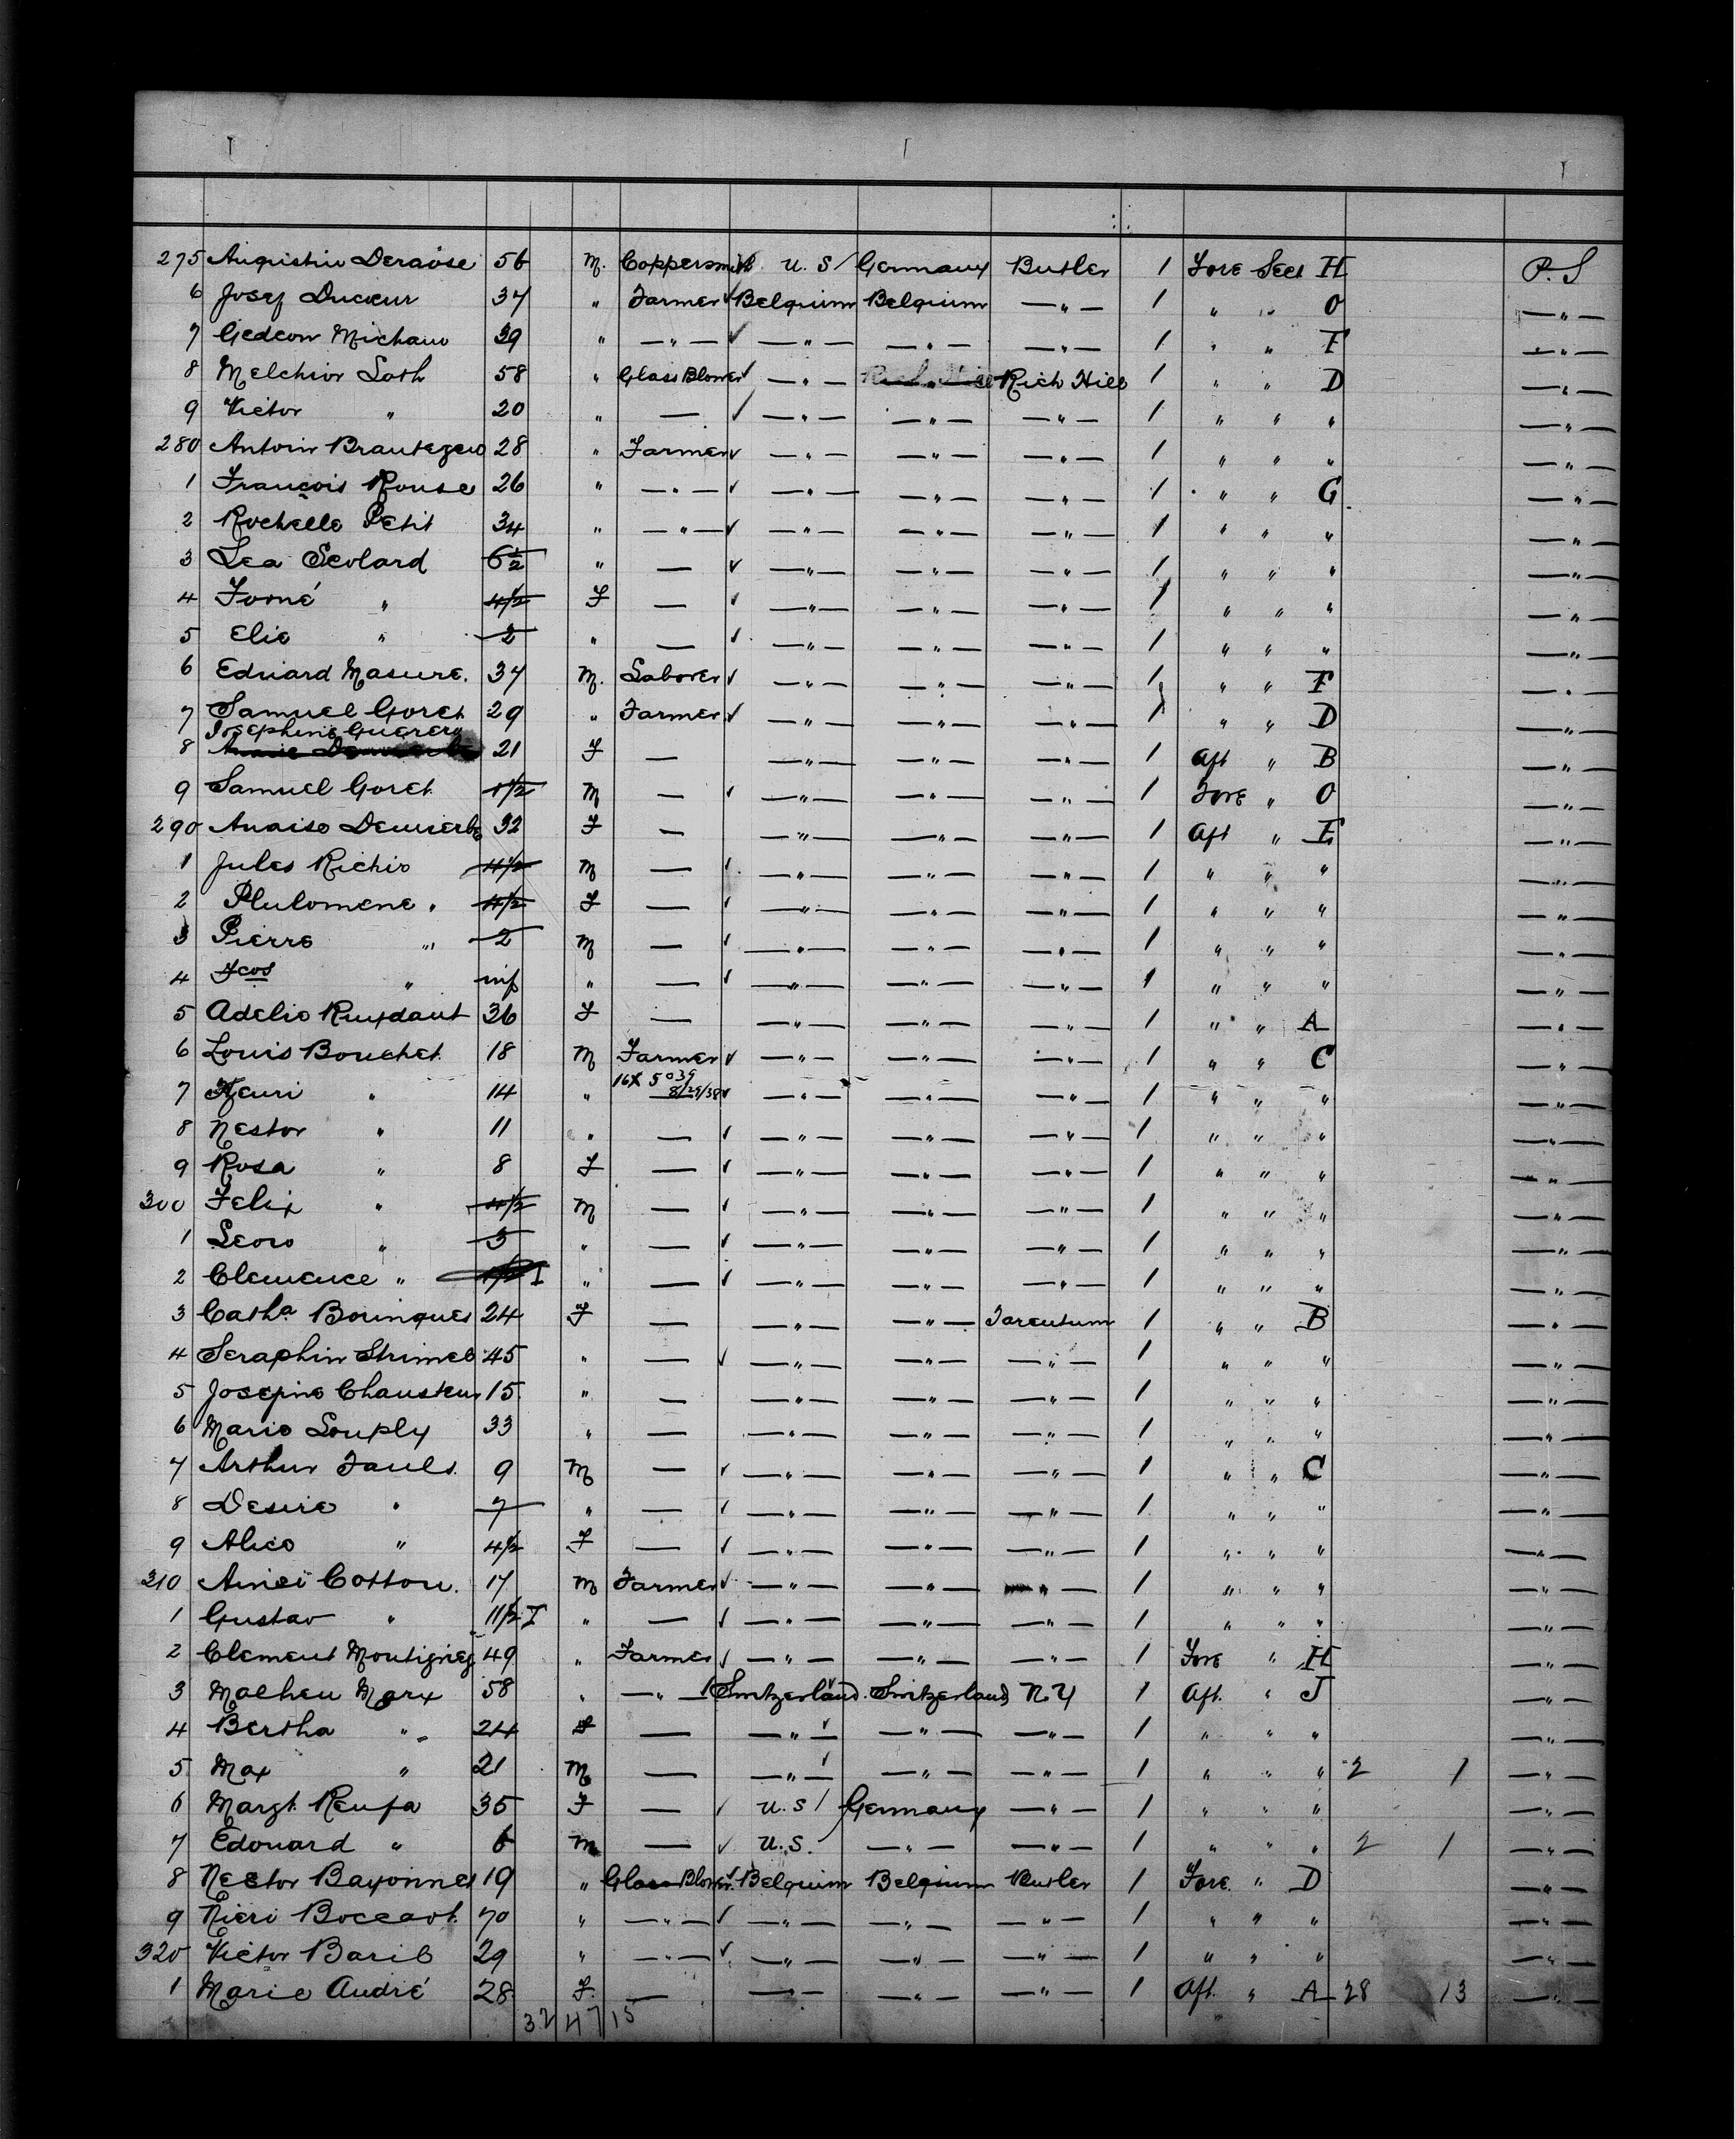 275 Augustin Deraose 56 M. Coppersmith U. S Germany Butler 1 Fore Sect H P. S
6 Josef Ducoeur 37 " Farmer Belgium Belgium —"— 1 " " O —"—
7 Gedeon Michaux 39 " —"— —"— —"— —"— 1 " " F —"—
8 Melchior Loth 58 " Glass Blower —"— —"— Rich Hill 1 " " D —"—
9 Victor " 20 " — —"— —"— —"— 1 " " " —"—
280 Antoin 28 " Farmer —"— —"— —"— 1 " " " —"—
1 François Rouse 26 " —"— —"— —"— —"— 1 " " G —"—
2 Rochelle Petit 34 " —"— —"— —"— —"— 1 " " " —"—
3 Lea Scolard 6½ " — —"— —"— —"— 1 " " " —"—
4 " 4½ F — —"— —"— —"— 1 " " " —"—
5 Elie " 2 " — —"— —"— —"— 1 " " " —"—
6 Eduard Masure. 37 M. Laborer —"— —"— —"— 1 " " F —"—
7 Samuel Goret 29 " Farmer —"— —"— —"— 1 " " D —"—
Josephine
8 21 F — —"— —"— —"— 1 Aft " B —"—
9 Samuel Goret 1½ M — —"— —"— —"— 1 Fore " O —"—
290 Anaise 32 F — —"— —"— —"— 1 Aft " E —"—
1 Jules Richir 4½ M — —"— —"— —"— 1 " " " —"—
2 Philomene " 4½ F — —"— —"— —"— 1 " " " —"—
3 Pierre " 2 M — —"— —"— —"— 1 " " " —"—
4 Fcos " inf " — —"— —"— —"— 1 " " " —"—
5 Adelie Ruydant 36 F — —"— —"— —"— 1 " " A —"—
6 Louis Bouchet 18 M Farmer —"— —"— —"— 1 " " C —"—
16X 5039
8/29/38
7 Henri " 14 " —"— —"— —"— 1 " " " —"—
8 Nestor " 11 " — —"— —"— —"— 1 " " " —"—
9 Rosa " 8 F — —"— —"— —"— 1 " " " —"—
300 Felix " 4½ M — —"— —"— —"— 1 " " " —"—
1 Leon " 3 " — —"— —"— —"— 1 " " " —"—
2 Clemence " I " — —"— —"— —"— 1 " " " —"—
3 Catha Bourques 24 F — —"— —"— Tarentum 1 " " B —"—
4 Seraphin Strimel 45 " — —"— —"— —"— 1 " " " —"—
5 Josepine Chausteur 15 " — —"— —"— —"— 1 " " " —"—
6 Marie Souply 33 " — —"— —"— —"— 1 " " " —"—
7 Arthur Fauls 9 M — —"— —"— —"— 1 " " C —"—
8 Desire " 7 " — —"— —"— —"— 1 " " " —"—
9 Alice " 4½ F — —"— —"— —"— 1 " " " —"—
310 Cotton. 17 M Farmer —"— —"— —"— 1 " " " —"—
1 Gustav " 11½ I " — —"— —"— —"— 1 " " " —"—
2 Clement Montigney 49 " Farmer —"— —"— —"— 1 Fore " H —"—
3 Matheu Marx 58 " —"— Switzerland. Switzerland N.Y 1 Aft. " J —"—
4 Bertha " 24 F — —"— —"— —"— 1 " " " —"—
5 Max " 21 M — —"— —"— —"— 1 " " " 2 1 —"—
6 Margt. Renfa 35 F — U. S Germany —"— 1 " " " —"—
7 Edouard " 6 M — U. S. —"— —"— 1 " " " 2 1 —"—
8 Nestor Bayonnes 19 " Glass Blower. Belgium Belgium Butler 1 Fore. " D —"—
9 Boccart. 70 " —"— —"— —"— —"— 1 " " " —"—
320 Victor Baril 29 " —"— —"— —"— —"— 1 " " " —"—
1 Marie André 28 F. — —"— —"— —"— 1 Aft. " A 28 13 —"—
32 47 15